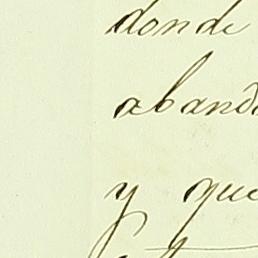 donde
aband
y que